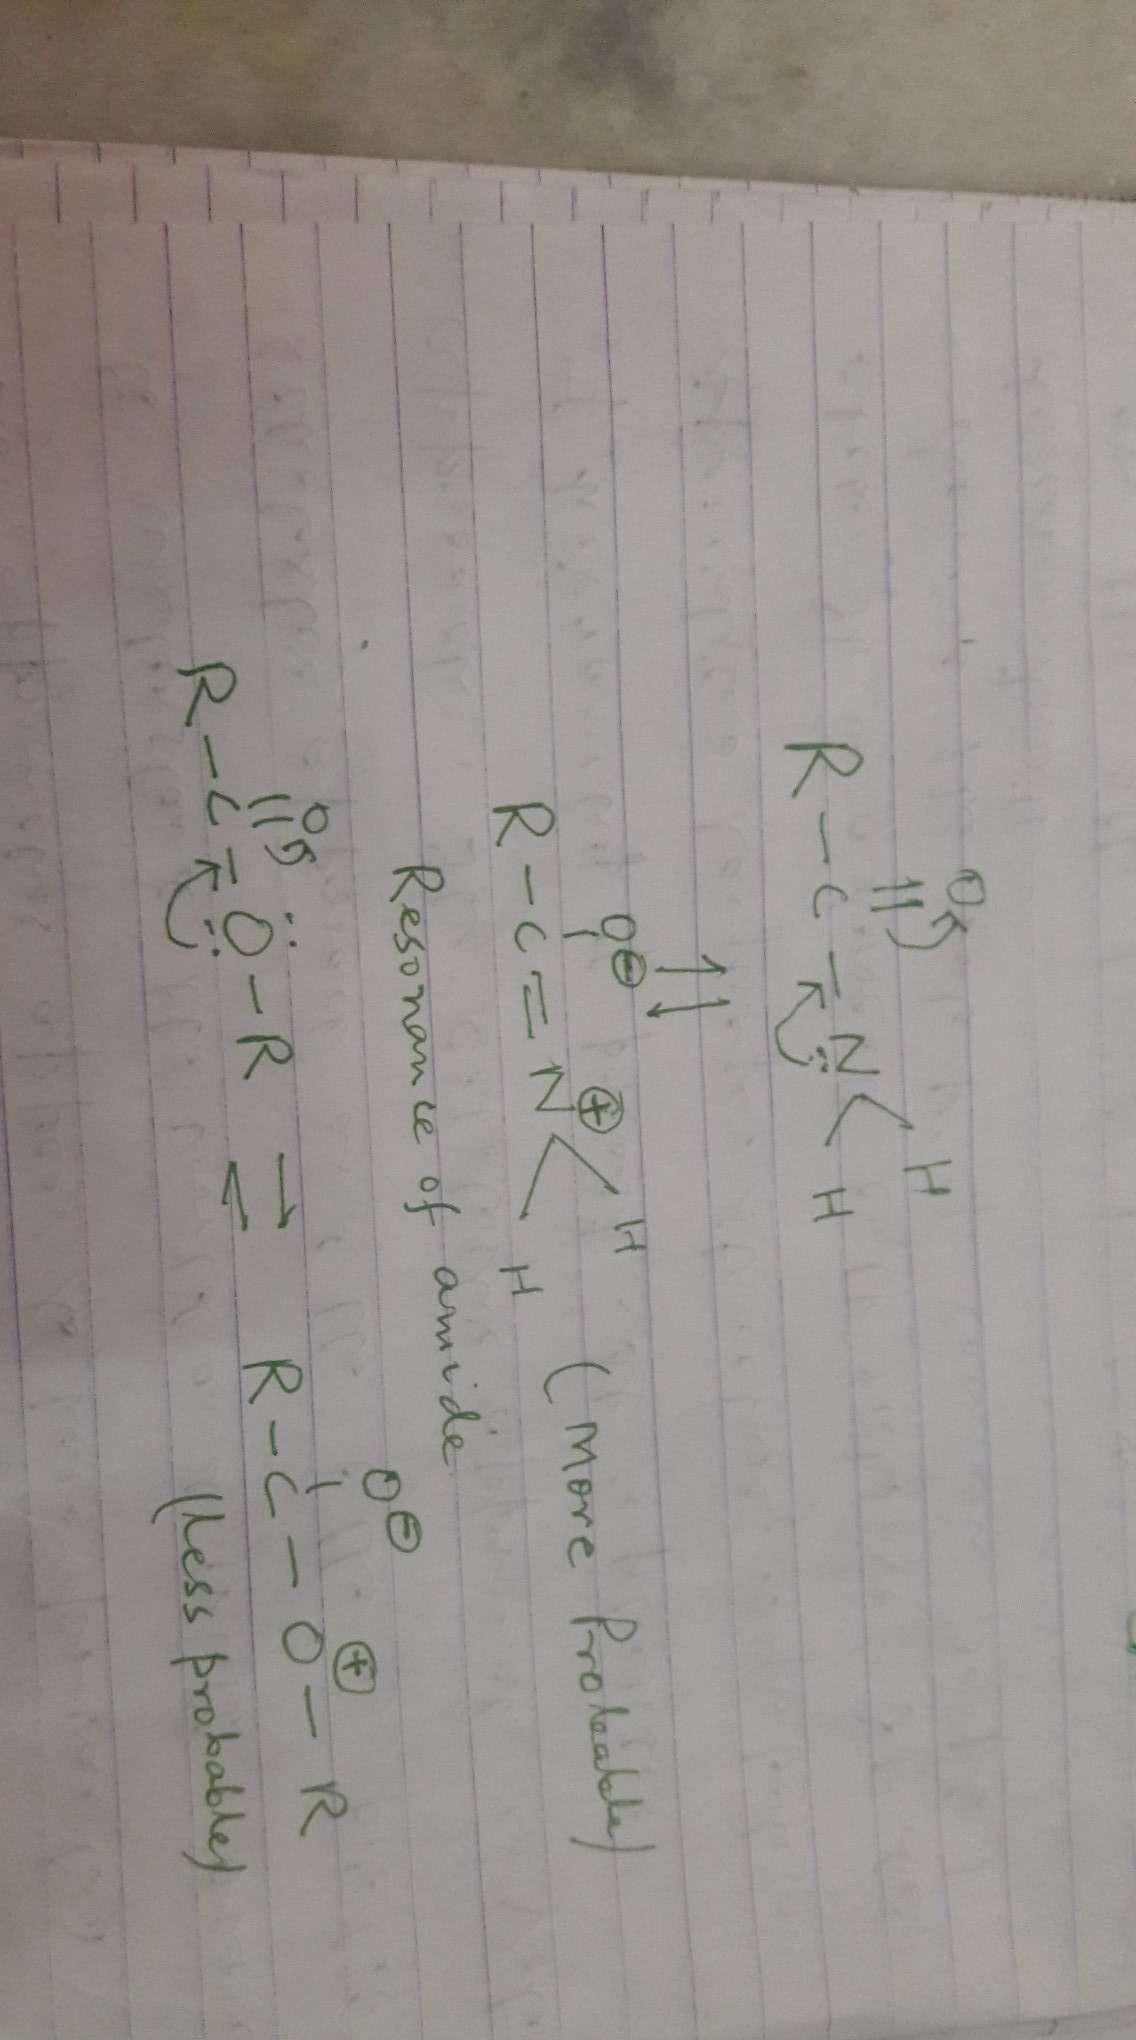 O
||
R - C - N̈ < H
H
⇌
O⊖
|
R - C = N⊕ < H
H (More Probable)
Resonance of amide
O
||
R - C - Ö - R ⇌ R - C - O⊕ - R
O⊖
|
(less probable)